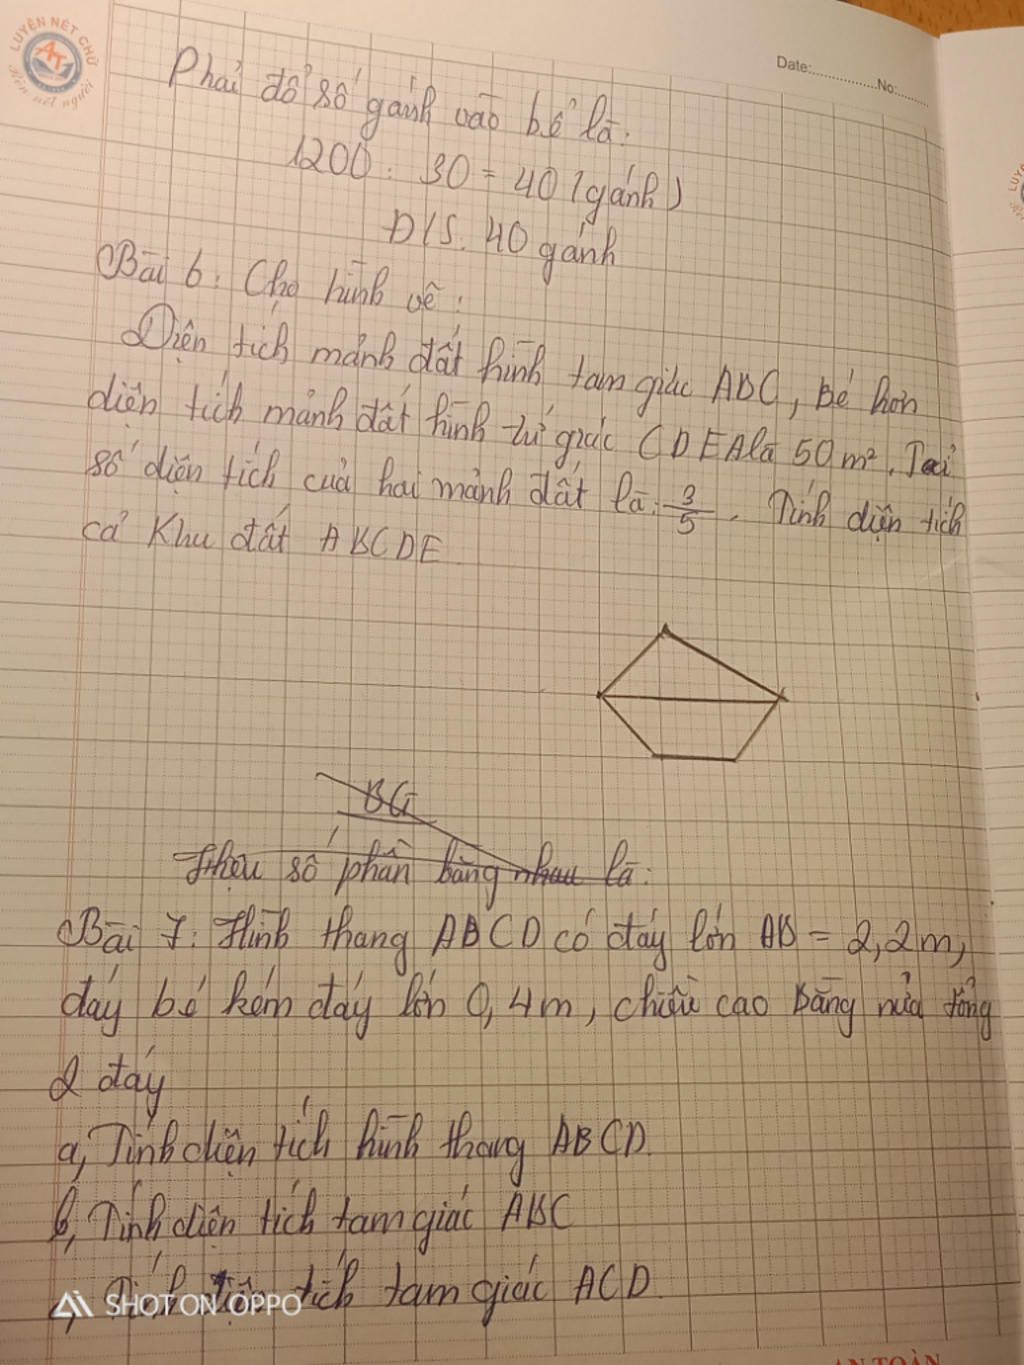 LUYỆN NÉT CHỮ
AT
Rèn nết người
Date:..............No:........
Phải đổ số gánh vào bể là:
1200 : 30 = 40 (gánh)
Đ/S. 40 gánh
Bài 6: Cho hình vẽ:
Diện tích mảnh đất hình tam giác ABC, bé hơn
diện tích mảnh đất hình tứ giác CDEA là 50 m². Tỉ
số diện tích của hai mảnh đất là: 3/5. Tính diện tích
cả khu đất ABCDE.
BG
Hiệu số phần bằng nhau là:
Bài 7: Hình thang ABCD có đáy lớn AB = 2,2m,
đáy bé kém đáy lớn 0,4m, chiều cao bằng nửa tổng
2 đáy
a, Tính diện tích hình thang ABCD.
b, Tính diện tích tam giác ABC
c, Tính diện tích tam giác ACD.
SHOT ON OPPO
AN TOÀN